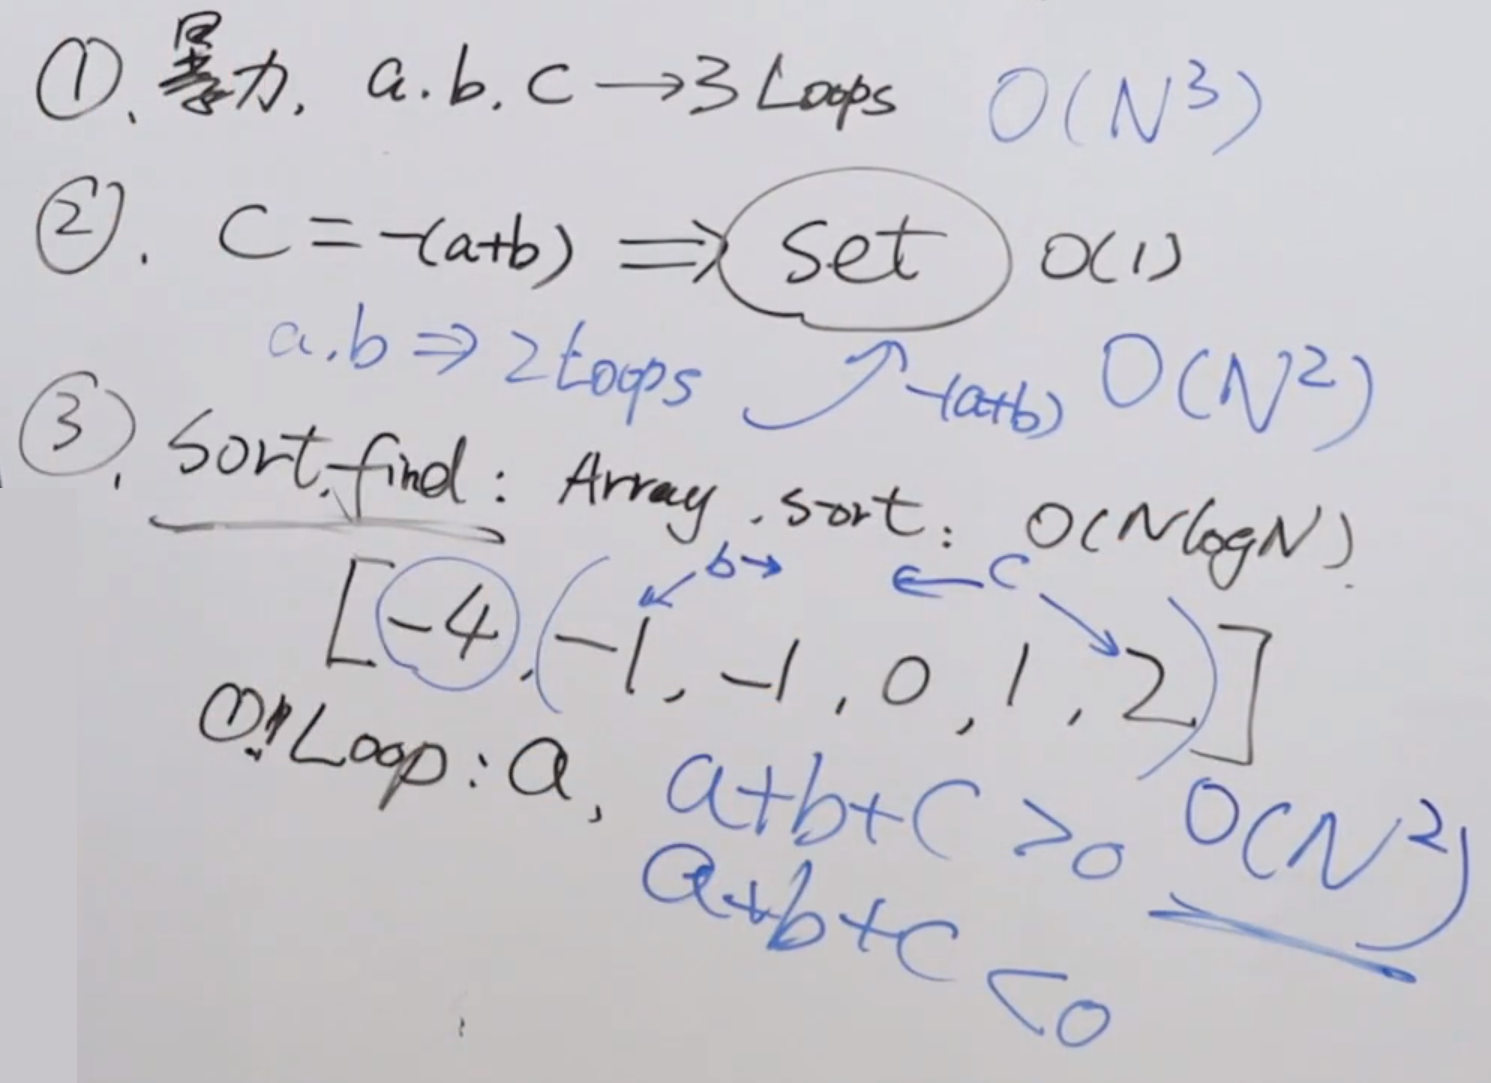 ①. 暴力. a.b.c → 3 Loops O(N³)
②. C = -(a+b) ⇒ Set O(1)
a.b ⇒ 2 Loops -(a+b) O(N²)
③. Sort.find: Array.sort: O(NlogN).
b→ ←c
[-4, (-1, -1, 0, 1, 2)]
①. 1 Loop: a, a+b+c >0 O(N²)
a+b+c <0